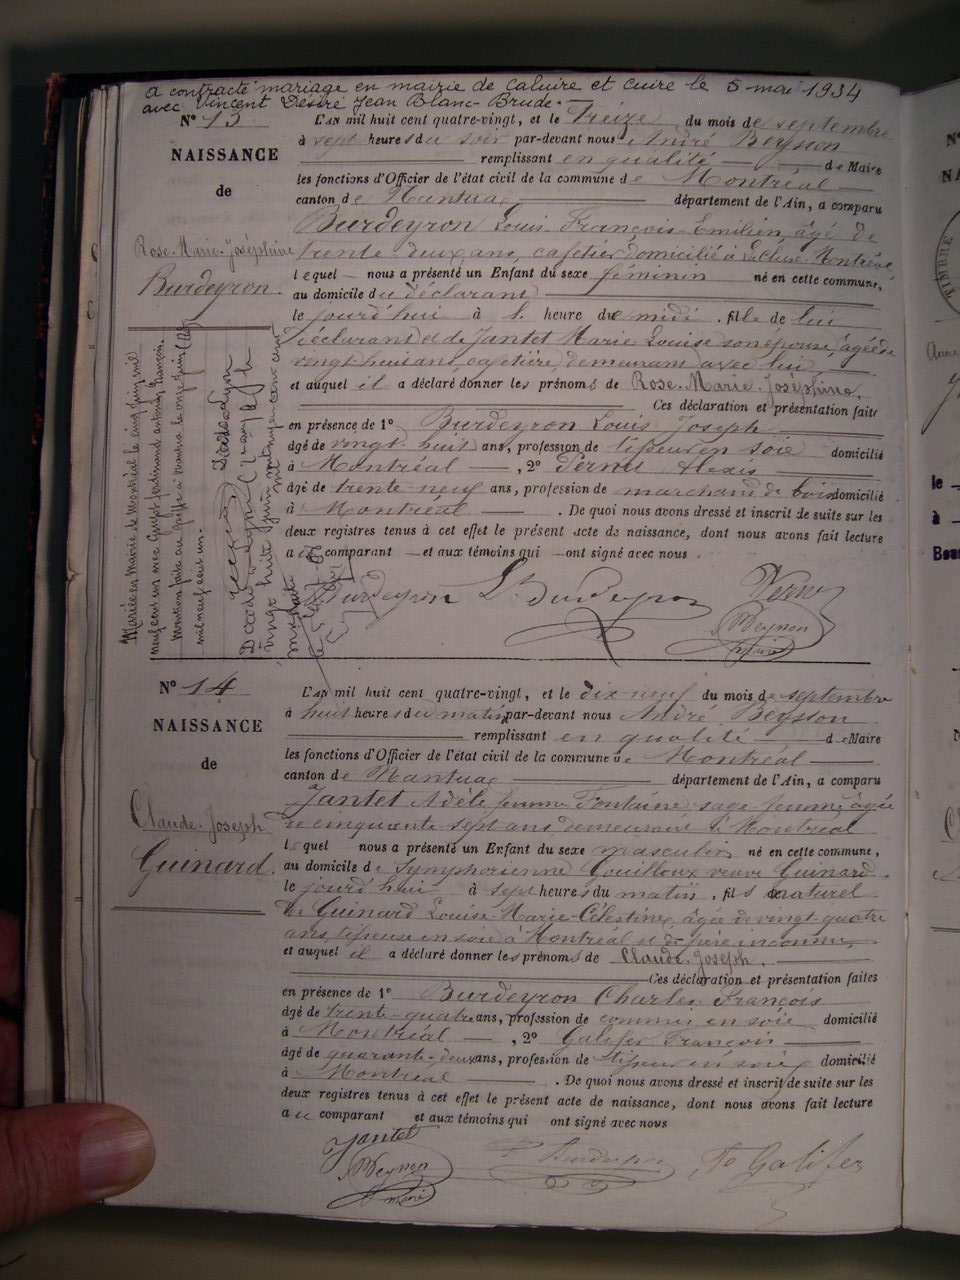 a contracté mariage en mairie de Caluire et Cuire le 5 mai 1934
avec Vincent Désiré Jean Blanc-Brude.
N° 13
NAISSANCE
de
Rose-Marie-Joséphine
Burdeyron.
L'AN mil huit cent quatre-vingt, et le treize du mois de septembre
à sept heures du soir par-devant nous André Beysson
remplissant en qualité de Maire
les fonctions d'Officier de l'état civil de la commune de Montréal
canton de Nantua département de l'Ain, a comparu
Burdeyron Louis François Emilien, âgé de
trente deux ans, cafetier domicilié à Montréal,
lequel nous a présenté un Enfant du sexe féminin né en cette commune,
au domicile du déclarant
le jourd'hui à heure de midi, fille de lui
déclarant et de Jantet Marie Louise son épouse, âgée de
vingt-huit ans, cafetière, demeurant avec lui,
et auquel il a déclaré donner les prénoms de Rose-Marie-Joséphine.
Ces déclaration et présentation faites
en présence de 1° Burdeyron Louis Joseph
âgé de vingt huit ans, profession de tisseur en soie domicilié
à Montréal, 2° Vernu Alexis
âgé de trente-neuf ans, profession de marchand de bois domicilié
à Montréal. De quoi nous avons dressé et inscrit de suite sur les
deux registres tenus à cet effet le présent acte de naissance, dont nous avons fait lecture
au comparant et aux témoins qui ont signé avec nous.
Burdeyron Ls Burdeyron Vernu
Beysson
maire
Mariée en Mairie de Montréal le cinq juin mil
neuf cent un avec ferdinand antoine françois.
Mention faite au Greffe à Nantua le onze juin
mil neuf cent un.
Décédée à Lyon
le vingt huit juin mil neuf cent
N° 14
NAISSANCE
de
Claude-Joseph
Guinard.
L'AN mil huit cent quatre-vingt, et le dix-neuf du mois de septembre
à huit heures du matin par-devant nous André Beysson
remplissant en qualité de Maire
les fonctions d'Officier de l'état civil de la commune de Montréal
canton de Nantua département de l'Ain, a comparu
Jantet Adèle femme Fontaine, sage-femme, âgée
de cinquante-sept ans, demeurant à Montréal
lequel nous a présenté un Enfant du sexe masculin né en cette commune,
au domicile de Symphorienne Gouilloux veuve Guinard
le jourd'hui à sept heures du matin, fils naturel
de Guinard Louise Marie-Célestine, âgée de vingt-quatre
ans, tisseuse en soie à Montréal et de père inconnu,
et auquel il a déclaré donner les prénoms de Claude-Joseph.
Ces déclaration et présentation faites
en présence de 1° Burdeyron Charles François
âgé de trente-quatre ans, profession de commis en soie domicilié
à Montréal, 2° Galifer François
âgé de quarante-deux ans, profession de tisseur en soie domicilié
à Montréal. De quoi nous avons dressé et inscrit de suite sur les
deux registres tenus à cet effet le présent acte de naissance, dont nous avons fait lecture
au comparant et aux témoins qui ont signé avec nous
Jantet Burdeyron Fs Galifer
Beysson
maire
TIMBRE
le
à